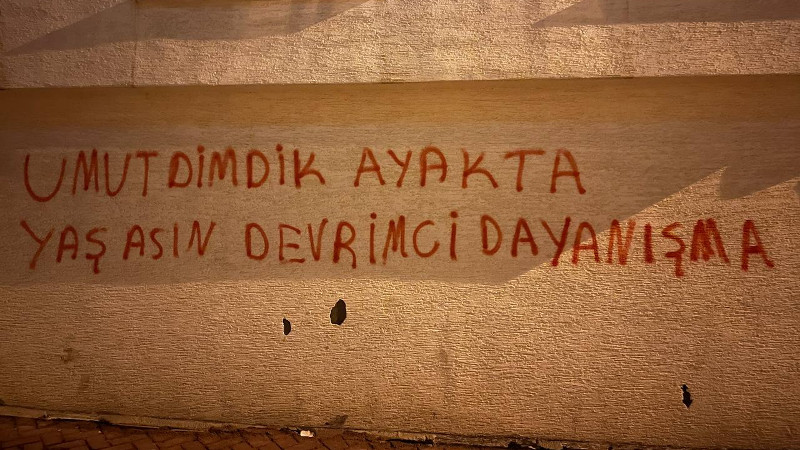 UMUT DİMDİK AYAKTA
YAŞASIN DEVRİMCİ DAYANIŞMA